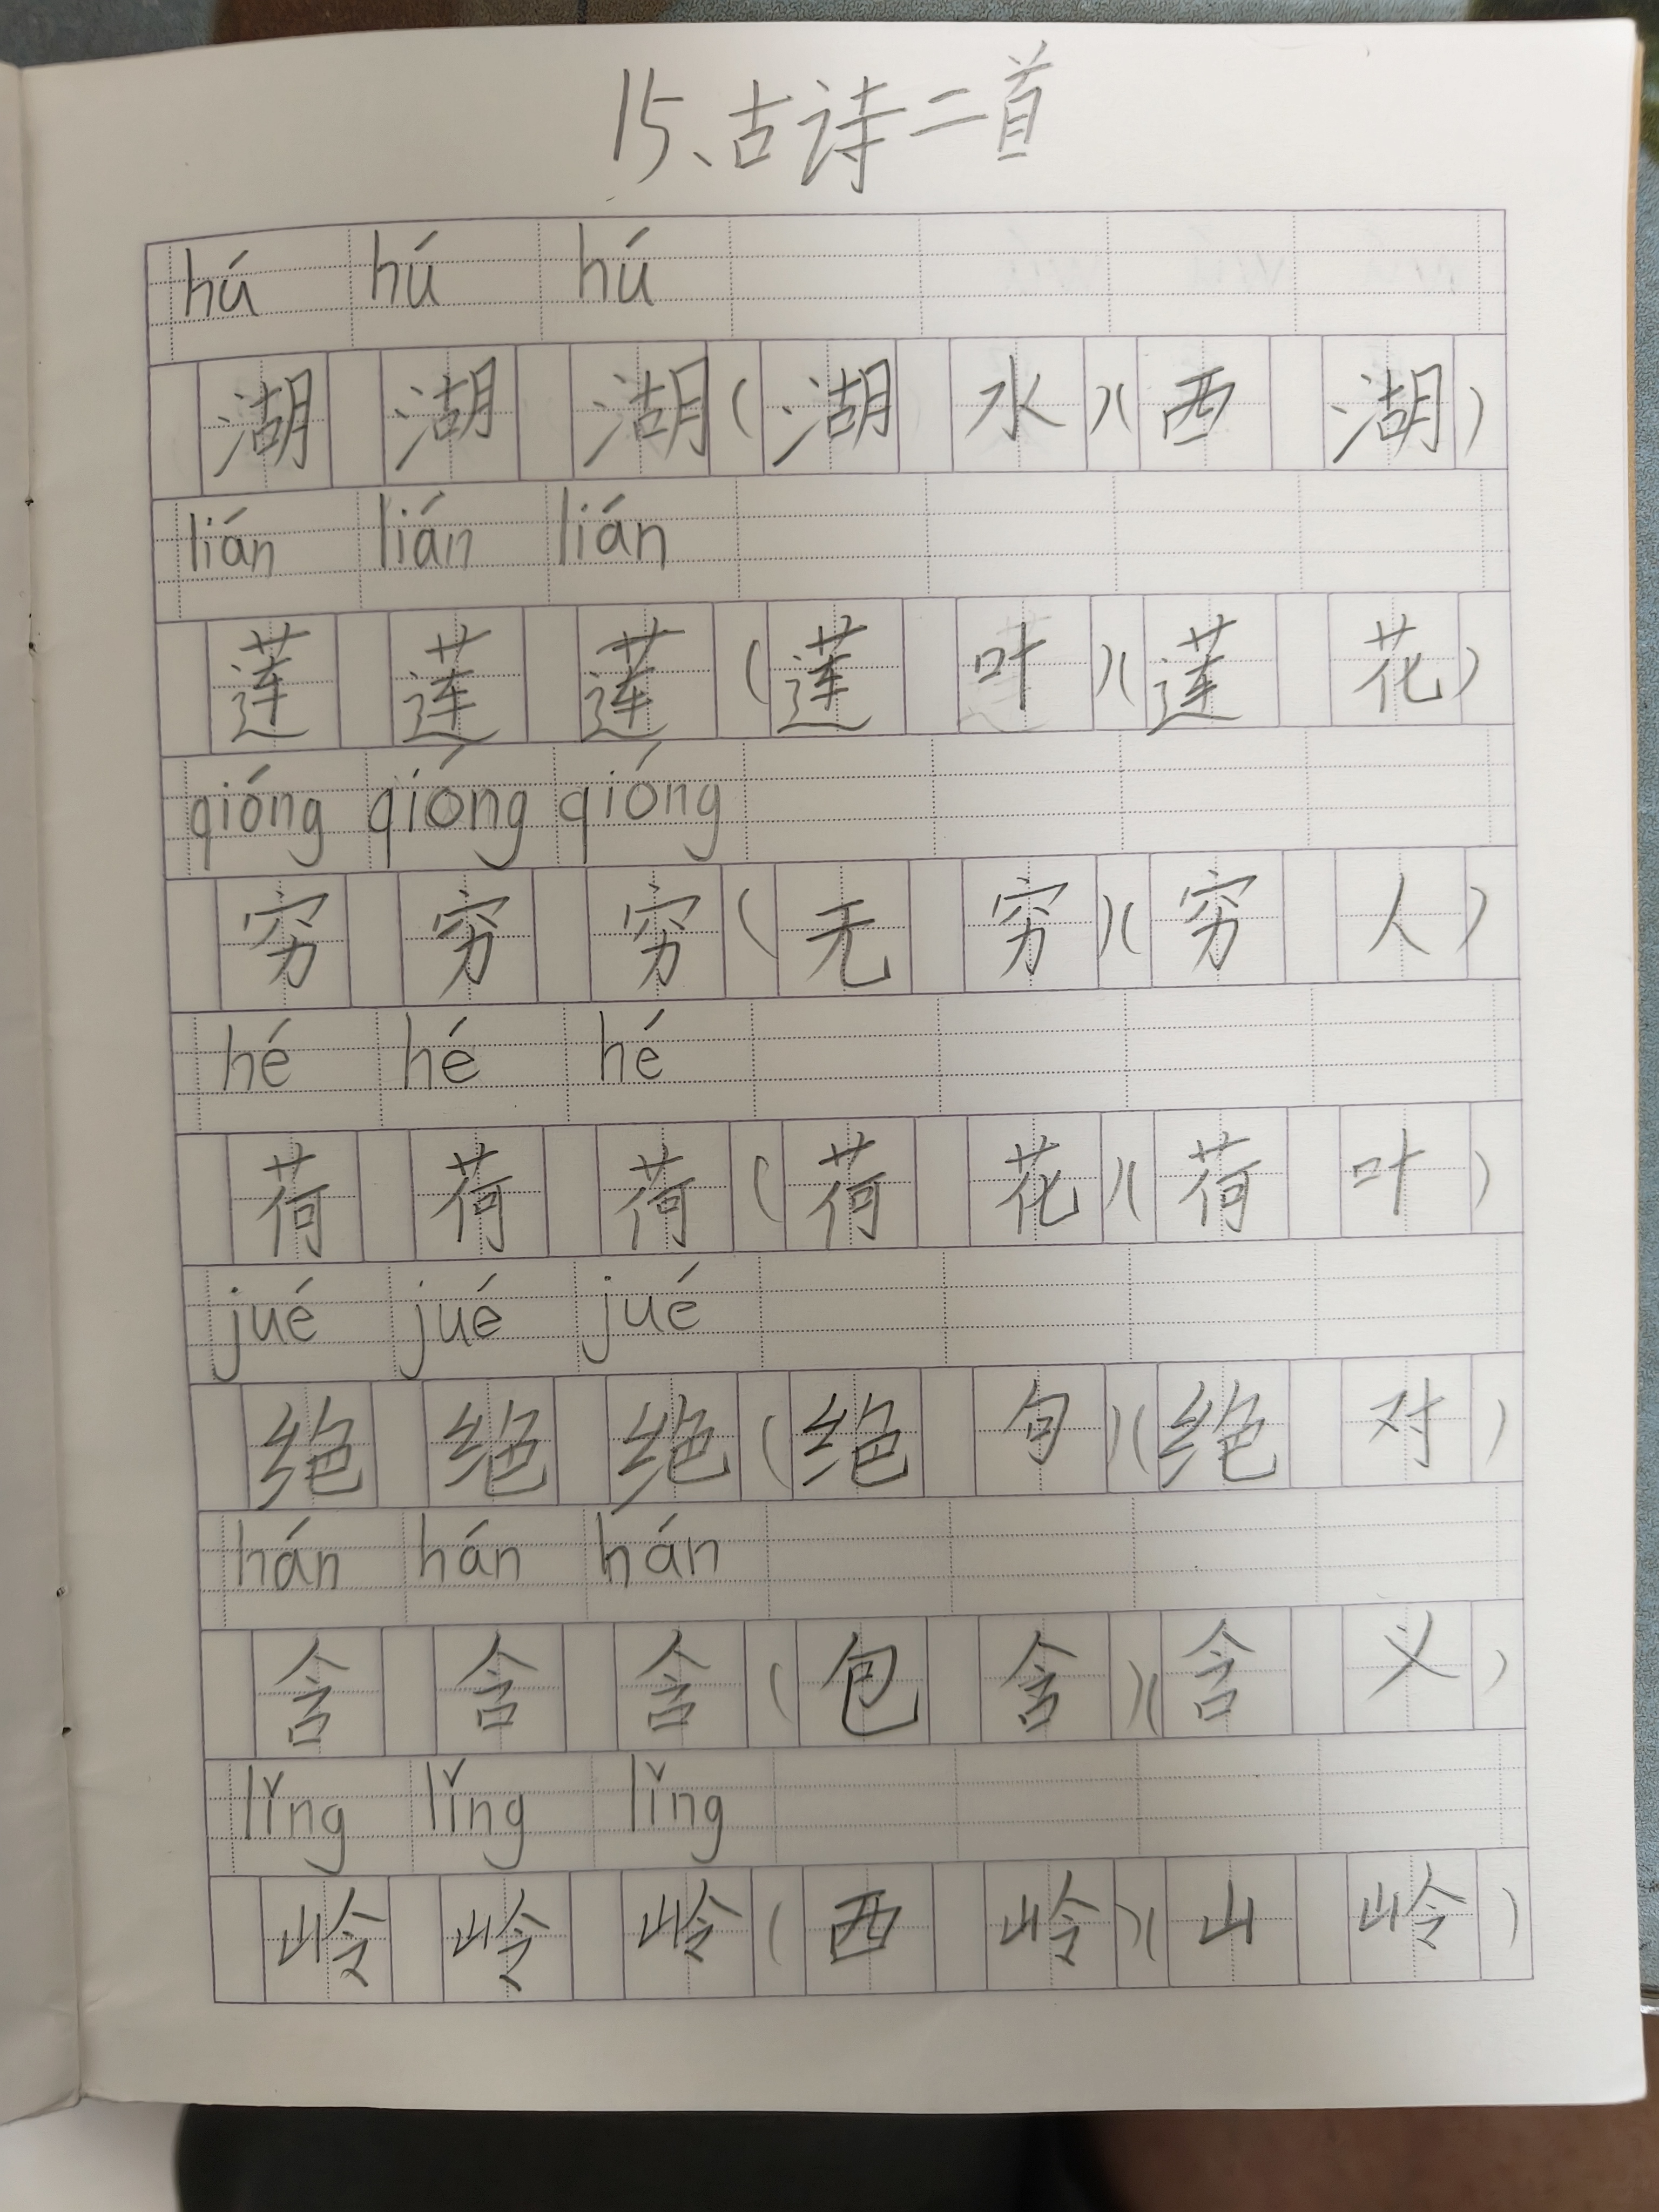 15、古诗二首
hú hú hú
湖 湖 湖（湖水）（西湖）
lián lián lián
莲 莲 莲（莲叶）（莲花）
qióng qióng qióng
穷 穷 穷（无穷）（穷人）
hé hé hé
荷 荷 荷（荷花）（荷叶）
jué jué jué
绝 绝 绝（绝句）（绝对）
hán hán hán
含 含 含（包含）（含义）
lǐng lǐng lǐng
岭 岭 岭（西岭）（山岭）